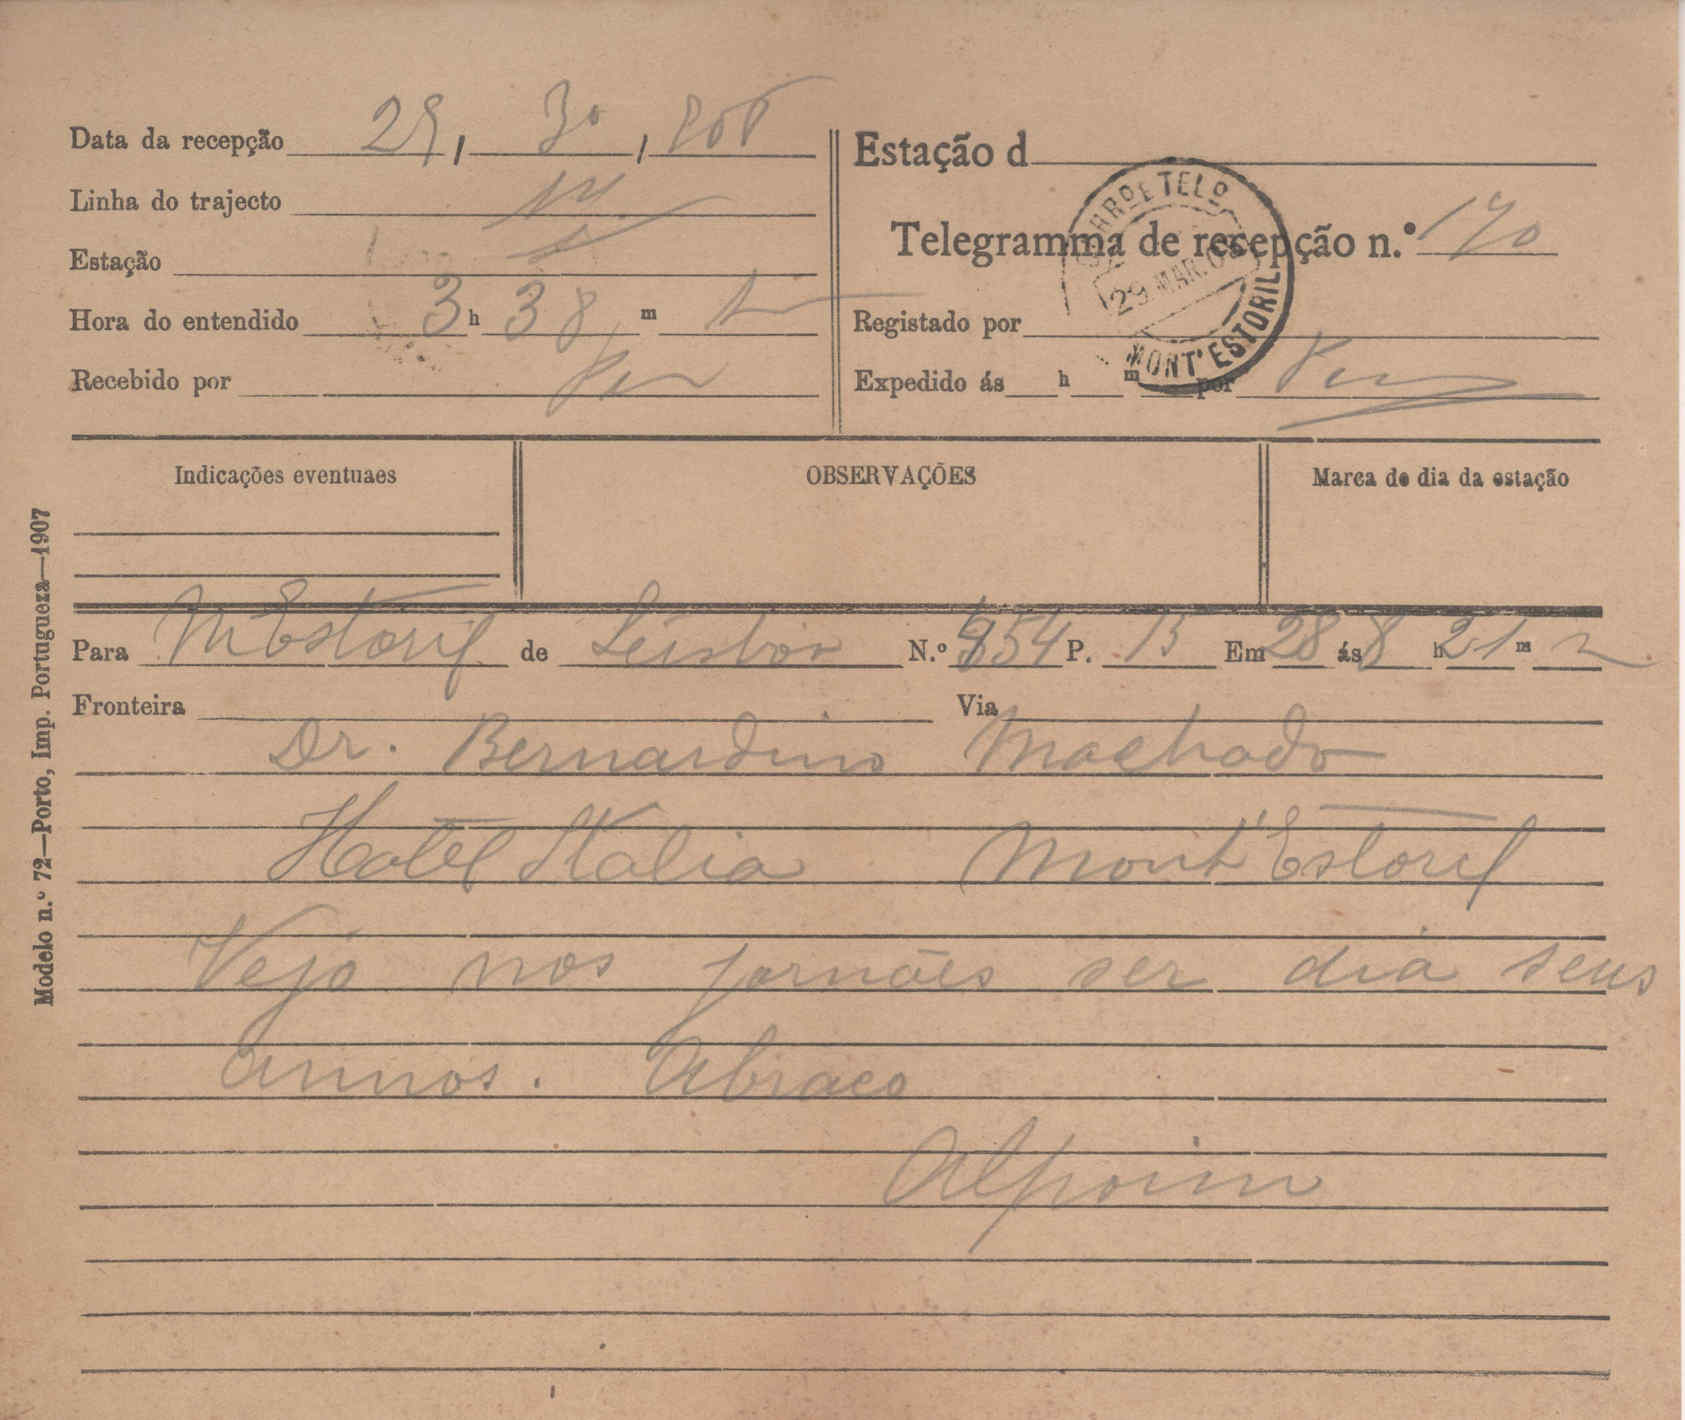 Data da recepção 29, 3º, 908
Estação d
Linha do trajecto
Telegramma de recepção n.º 170
Estação
Hora do entendido 3 h 38 m
Registado por
Recebido por
Expedido ás h m por
CORRº E TELº
29 MAR. 0
MONT' ESTORIL
Indicações eventuaes
OBSERVAÇÕES
Marca do dia da estação
Para MEstoril de Lisboa N.º 354 P. 13 Em 28 ás 8 h 21 m
Fronteira Via
Dr. Bernardino Machado
Hotel Italia Mont'Estoril
Vejo nos jornaes ser dia seus
annos. Abraço
Alpoim
Modelo n.º 72—Porto, Imp. Portugueza—1907